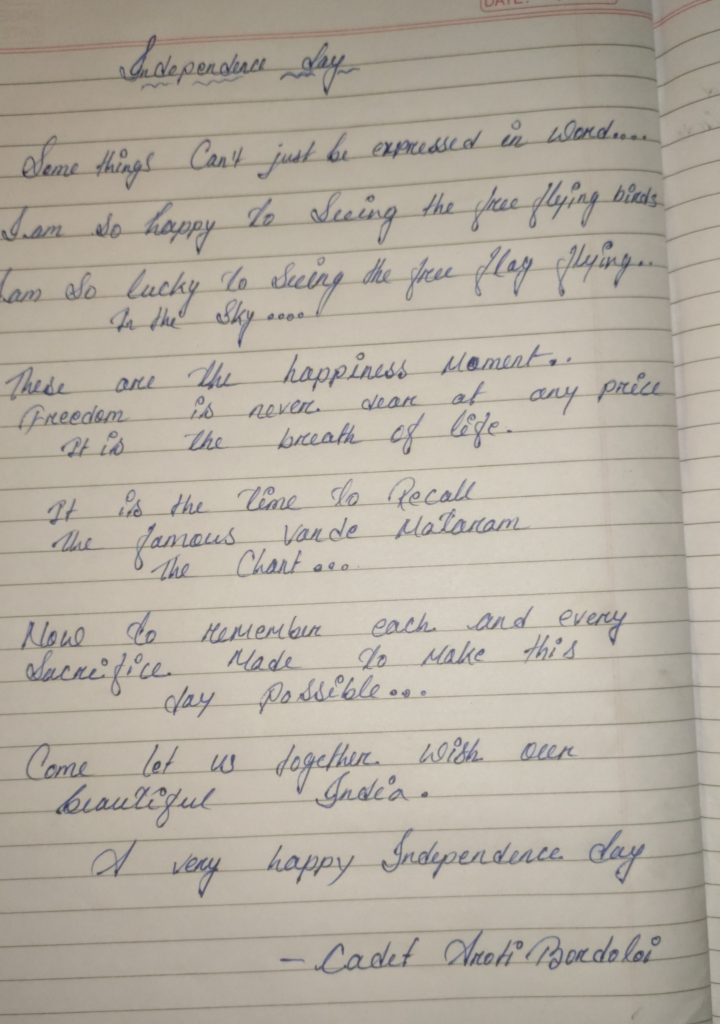 DATE:
Independence Day
Some things Can't just be expressed in Word....
I am so happy to Seeing the free flying birds
I am so lucky to Seeing the free flag flying..
In the Sky....
These are the happiness Moment..
Freedom is never dear at any price
It is the breath of life.
It is the time to Recall
The famous Vande Mataram
The Chant...
Now to remember each and every
Sacrifice Made to Make this
day possible...
Come let us together wish our
beautiful India.
A very happy Independence day
- Cadet Aroti Bordoloi